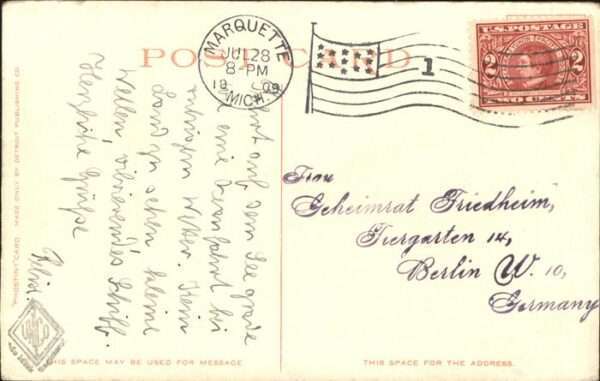 POST CARD
MARQUETTE
JUL 28
8 - PM
1909
MICH.
1
U.S. POSTAGE
2 2
TWO CENTS
auf dem See grade
eine bei
ruhigem Wetter. Kein
Land zu sehen kleine
Wellen, vibrierendes Schiff.
Herzliche Grüße
Frau
Geheimrat Friedheim,
Tiergarten 14,
Berlin W. 10,
Germany
"PHOSTINT" CARD MADE ONLY BY DETROIT PUBLISHING CO.
THIS SPACE MAY BE USED FOR MESSAGE
THIS SPACE IS FOR THE ADDRESS.